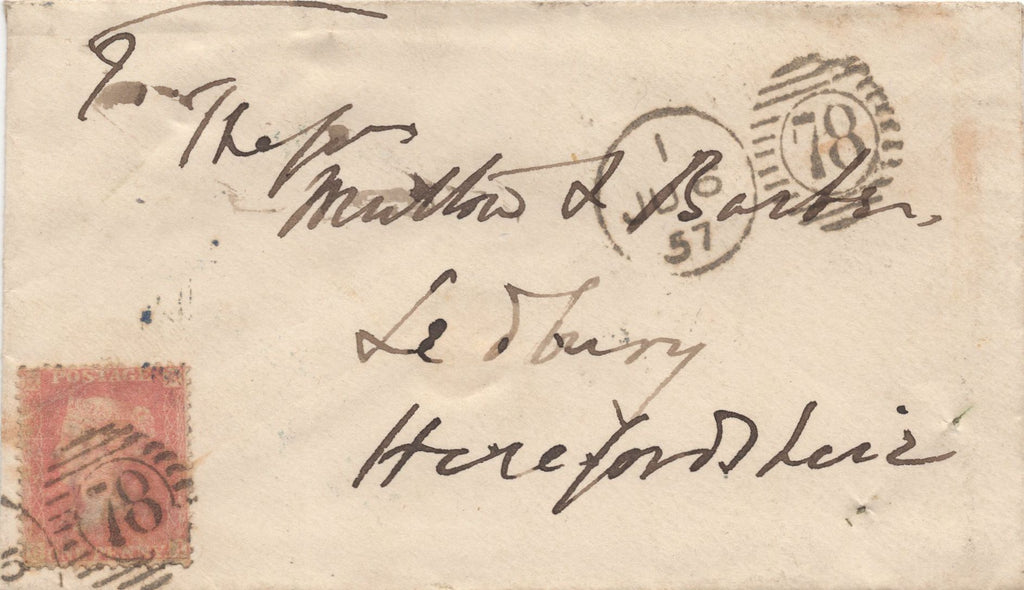 The
Mutton & Barber,
Ledbury
Herefordshire
1
JU 6
57
78
POSTAGE
78